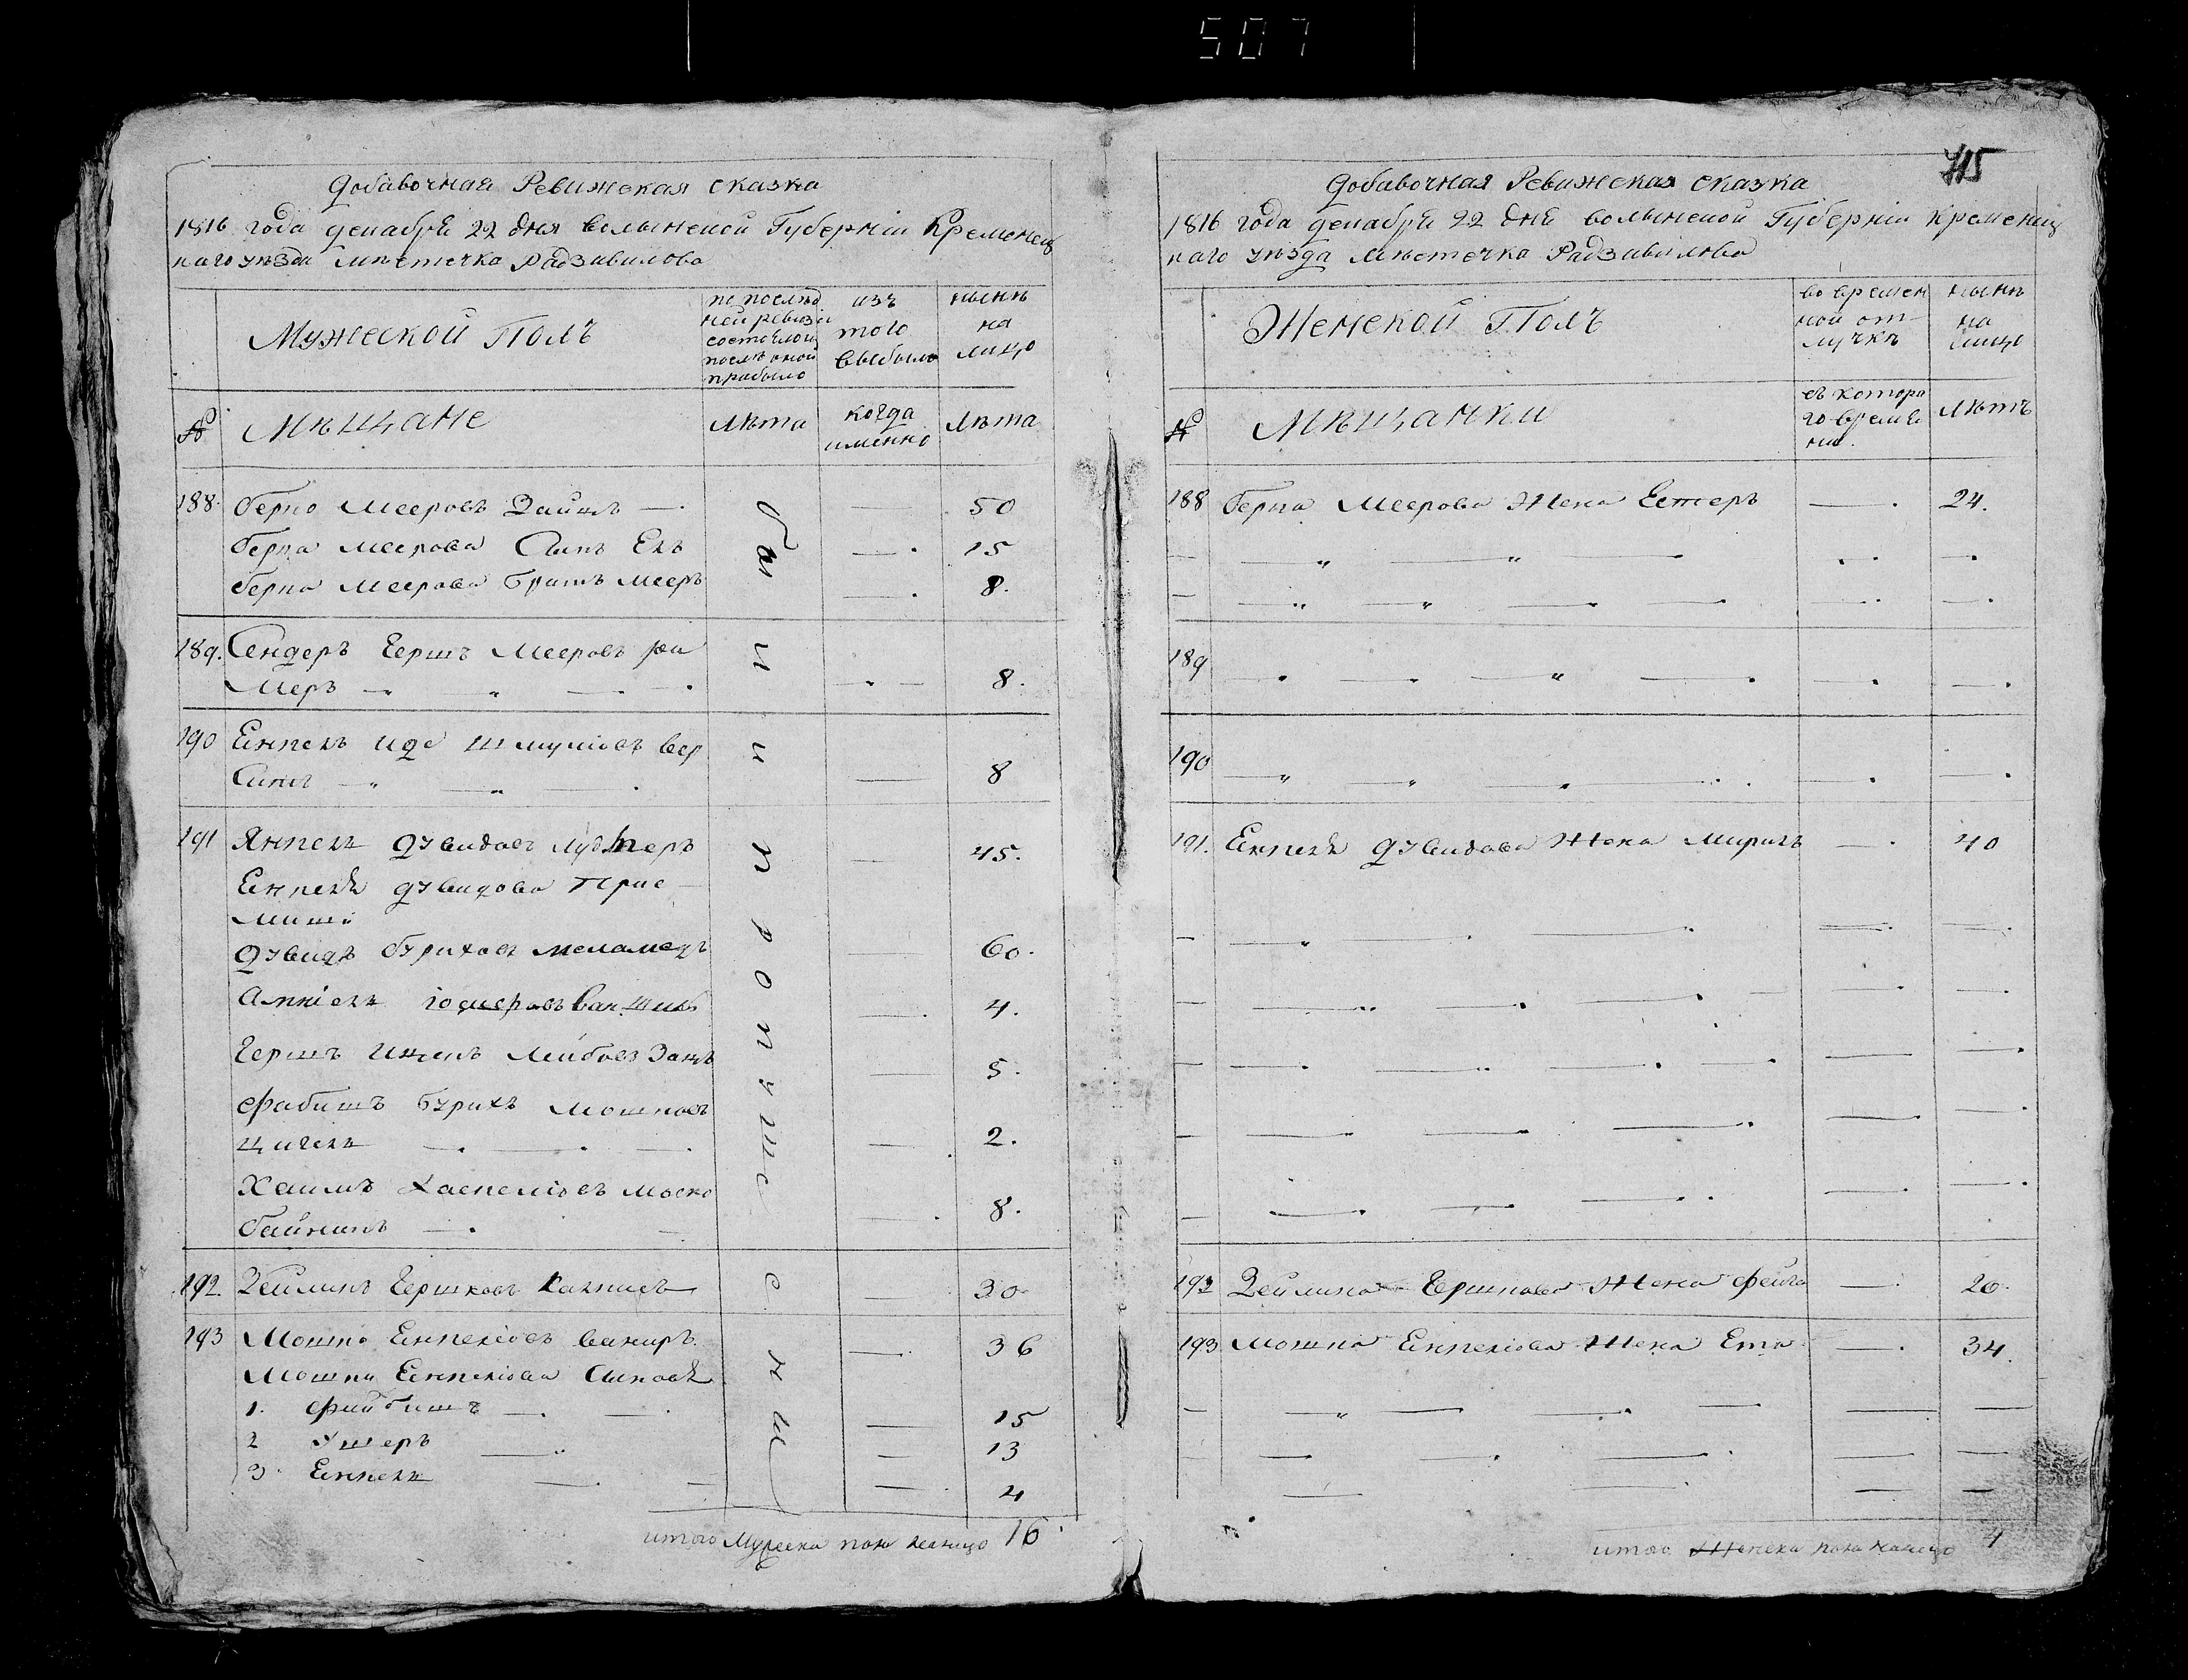 507
Добавочная Ревижская сказка
1816 года декабря 22 дня волынской Губернiи Кременец
каго уезда мѣстечка Радзивилова
Мужеской Полъ
по послѣд
ней ревизiи
состояло и
после оной
прибыло
изъ
того
выбыло
нынѣ
на
лицо
№
Мѣщане
Лѣта
когда
именно
Лѣта
188. Берко Мееровъ Зайцъ 50
Берка Меерова Сынъ Ель 15
Берка Меерова Братъ Мееръ 8.
189. Сендеръ Гершъ Мееровъ
Меръ 8.
190 Янкель Иде Шмулiовъ Вер
8
191 Янкель Дувидовъ 45.
Янкеля Дувидова Прие
мыши
Дувидъ Буриховъ меламедъ 60.
4.
Гершъ Ицекъ Лейбовъ Зацъ 5.
Файбишъ Бурихъ Мошковъ
Цигель 2.
Хаимъ Хаскелiовъ Моско
8.
192. Зейликъ Гершковъ 30
193 Мошко Янкелiовъ 36
Мошки Янкелiова Сыновья
1. Файбишъ 15
2 Ушеръ 13
3. Янкель 4
были пропущены
итого Мужеска пола налицо 16
715
Добавочная Ревижская сказка
1816 года декабря 22 дня волынской Губернiи Кременец
каго уезда мѣстечка Радзивилова
Женской Полъ
во времен
ной от
лучкѣ
нынѣ
на
лицо
№
Мѣщанки
съ которо
го време
ни.
Лѣтъ
188 Берка Меерова Жена Естеръ 24.
189
190
191. Янкеля Дувидова Жена Мириль 40
192 Зейлика Гершкова Жена Фейга 20.
193 Мошка Янкелiова Жена Ета 34.
итого Женска пола налицо 4